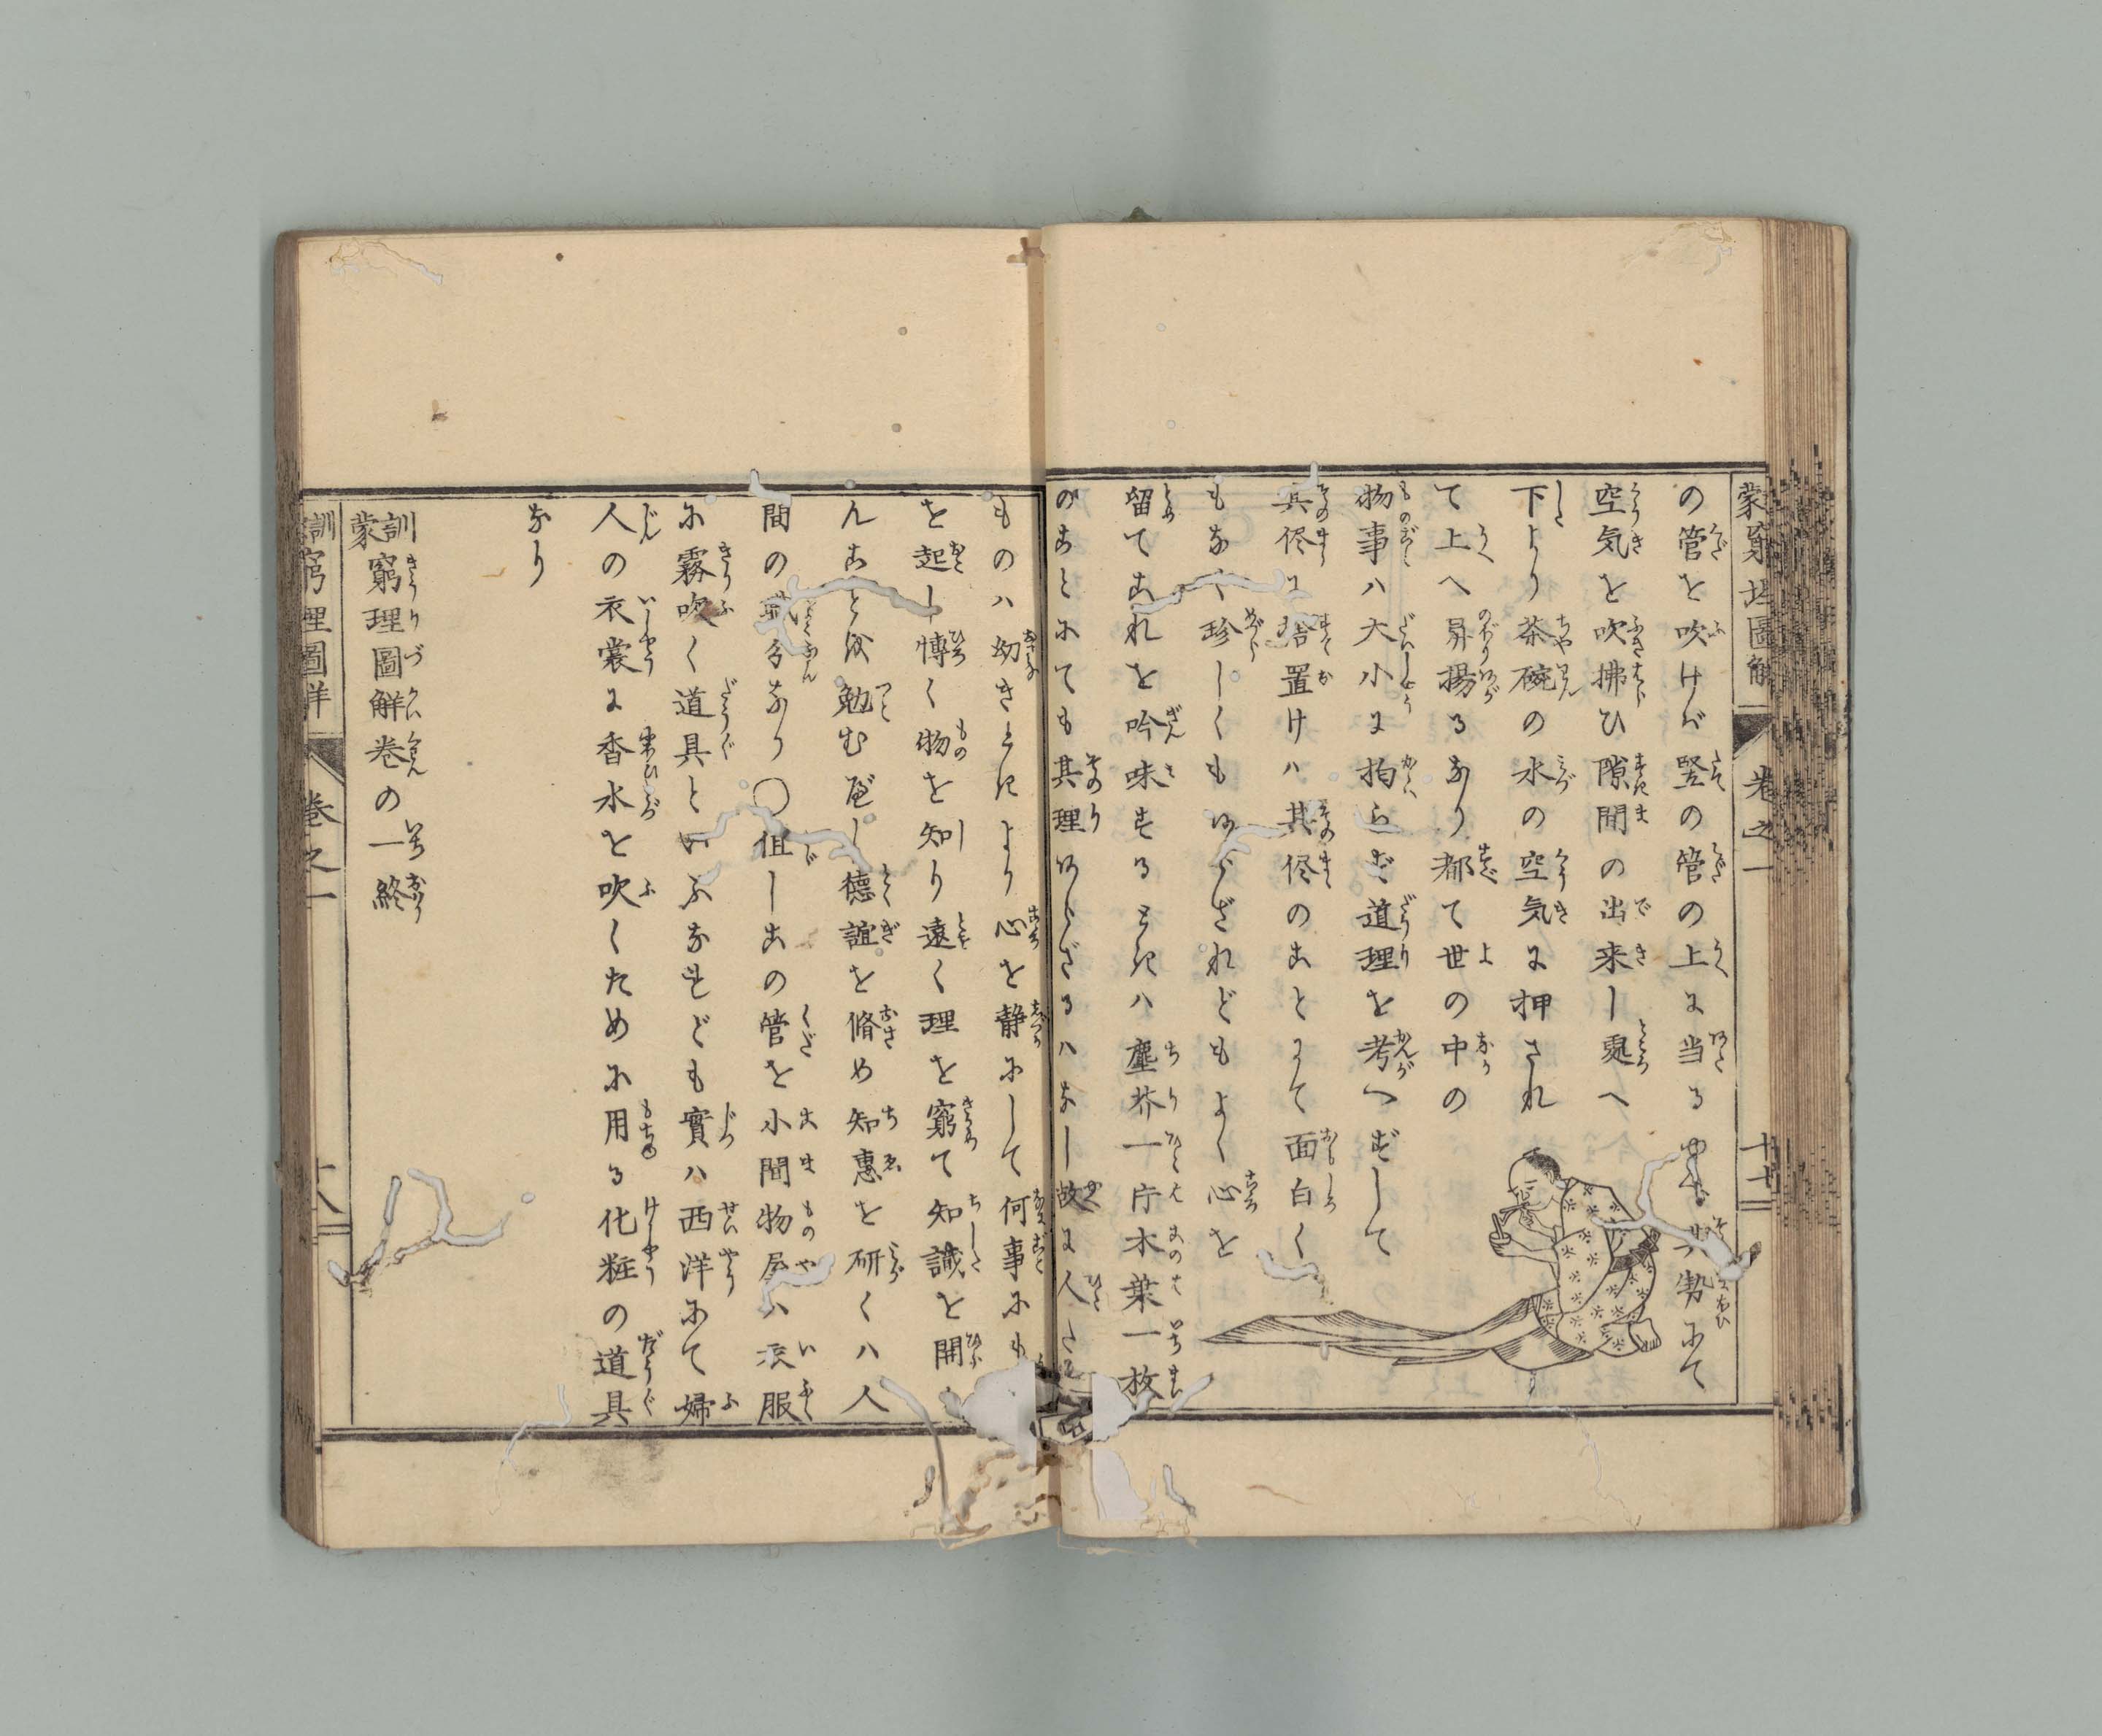 の管を吹けバ竪の管の上に当る
其勢にて
空気を吹拂ひ隙間の出来し処へ
下より茶碗の水の空気に押され
て上へ昇揚るなり都て世の中の
物事ハ大小に拘らず道理を考へずして
其侭に捨置けハ其侭のことにて面白く
もなく珍しくもあらざれどもよく心を
留てこれを吟味するときハ塵芥一片木葉一枚
のことにても其理あらざるハなし故に人たる
ものハ幼きときより心を静にして何事にも
を起し博く物を知り遠く理を窮て知識を開
んことを勉むべし徳誼を脩め知恵を研くハ人
間の職分なり〇但しこの管を小間物屋ハ衣服
に霧吹く道具といふなれども實ハ西洋にて婦
人の衣裳に香水を吹くために用る化粧の道具
なり
訓蒙窮理圖解巻の一終